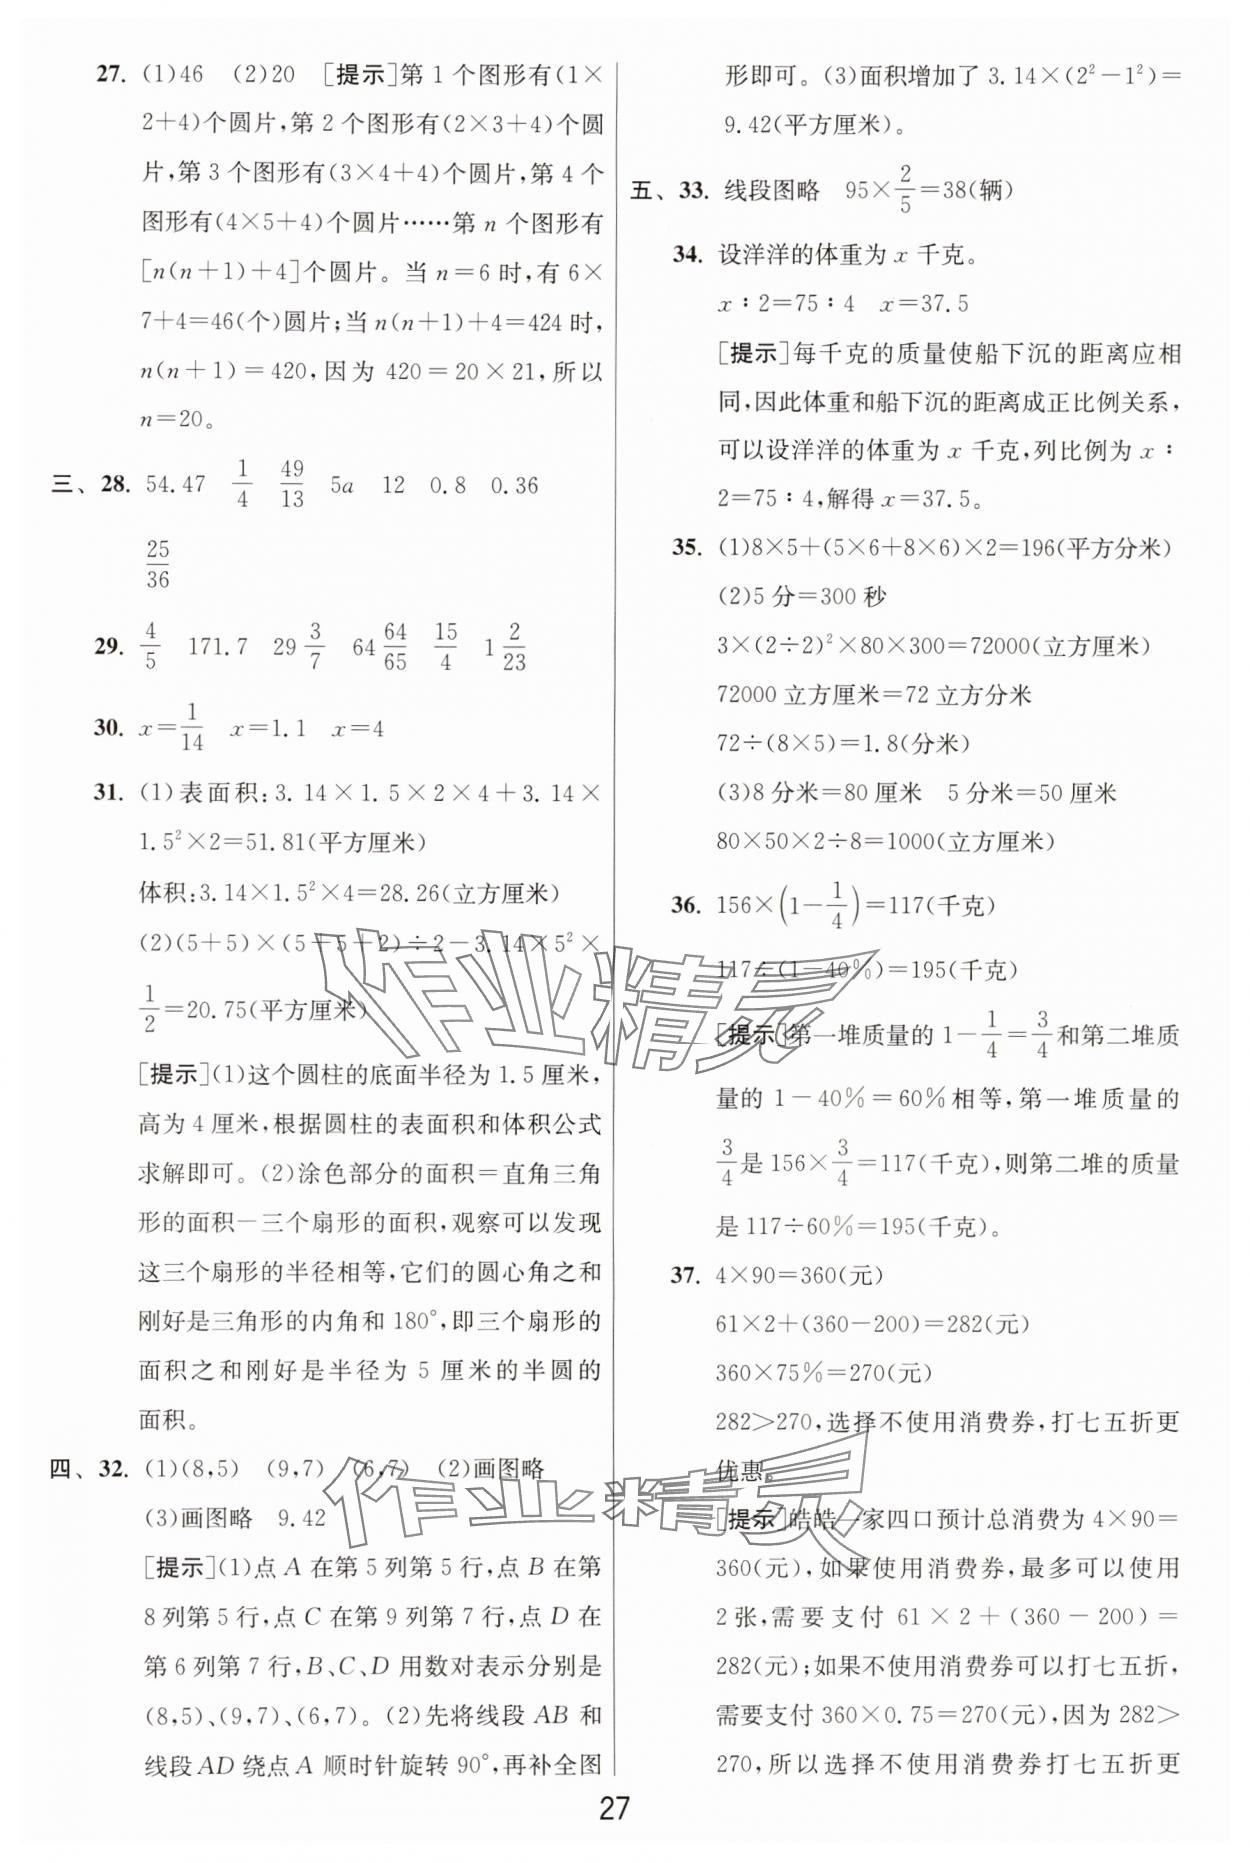 27. (1)46 (2)20 [提示]第 1 个图形有(1×
2+4)个圆片,第 2 个图形有(2×3+4)个圆
片,第 3 个图形有(3×4+4)个圆片,第 4 个
图形有(4×5+4)个圆片……第 n 个图形有
[n(n+1)+4]个圆片。当 n=6 时,有 6×
7+4=46(个)圆片;当 n(n+1)+4=424 时,
n(n+1)=420,因为 420=20×21,所以
n=20。
三、28. 54.47 1/4 49/13 5a 12 0.8 0.36
25/36
29. 4/5 171.7 29 3/7 64 64/65 15/4 1 2/23
30. x=1/14 x=1.1 x=4
31. (1)表面积:3.14×1.5×2×4+3.14×
1.5²×2=51.81(平方厘米)
体积:3.14×1.5²×4=28.26(立方厘米)
(2)(5+5)×(5+5+2)÷2-3.14×5²×
1/2=20.75(平方厘米)
[提示](1)这个圆柱的底面半径为 1.5 厘米,
高为 4 厘米,根据圆柱的表面积和体积公式
求解即可。(2)涂色部分的面积=直角三角
形的面积-三个扇形的面积,观察可以发现
这三个扇形的半径相等,它们的圆心角之和
刚好是三角形的内角和 180°,即三个扇形的
面积之和刚好是半径为 5 厘米的半圆的
面积。
四、32. (1)(8,5) (9,7) (6,7) (2)画图略
(3)画图略 9.42
[提示](1)点 A 在第 5 列第 5 行,点 B 在第
8 列第 5 行,点 C 在第 9 列第 7 行,点 D 在
第 6 列第 7 行,B、C、D 用数对表示分别是
(8,5)、(9,7)、(6,7)。(2)先将线段 AB 和
线段 AD 绕点 A 顺时针旋转 90°,再补全图
形即可。(3)面积增加了 3.14×(2²-1²)=
9.42(平方厘米)。
五、33. 线段图略 95×2/5=38(辆)
34. 设洋洋的体重为 x 千克。
x∶2=75∶4 x=37.5
[提示]每千克的质量使船下沉的距离应相
同,因此体重和船下沉的距离成正比例关系,
可以设洋洋的体重为 x 千克,列比例为 x∶
2=75∶4,解得 x=37.5。
35. (1)8×5+(5×6+8×6)×2=196(平方分米)
(2)5 分=300 秒
3×(2÷2)²×80×300=72000(立方厘米)
72000 立方厘米=72 立方分米
72÷(8×5)=1.8(分米)
(3)8 分米=80 厘米 5 分米=50 厘米
80×50×2÷8=1000(立方厘米)
36. 156×(1-1/4)=117(千克)
117÷(1-40%)=195(千克)
[提示]第一堆质量的 1-1/4=3/4和第二堆质
量的 1-40%=60%相等,第一堆质量的
3/4是 156×3/4=117(千克),则第二堆的质量
是 117÷60%=195(千克)。
37. 4×90=360(元)
61×2+(360-200)=282(元)
360×75%=270(元)
282>270,选择不使用消费券,打七五折更
优惠。
[提示]皓皓一家四口预计总消费为 4×90=
360(元),如果使用消费券,最多可以使用
2 张,需要支付 61×2+(360-200)=
282(元);如果不使用消费券可以打七五折,
需要支付 360×0.75=270(元),因为 282>
270,所以选择不使用消费券打七五折更
27
作业精灵
作业精灵